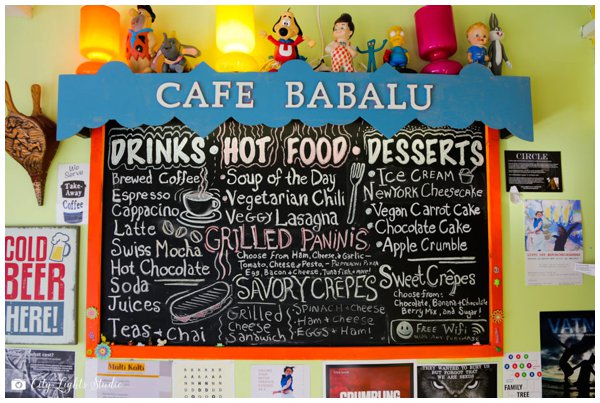 CAFE BABALU
DRINKS · HOT FOOD · DESSERTS
Brewed Coffee
Espresso
Cappacino
Latte
Swiss Mocha
Hot Chocolate
Soda
Juices
Teas + Chai
• Soup of the Day
• Vegetarian Chili
Veggy Lasagna
GRILLED PANINIS
Choose From Ham, Cheese, + Garlic -
Tomato, Cheese + Pesto, - Pepperoni Pizza
Egg, Bacon + Cheese, Tuna fish + more!
SAVORY CRÊPES
Grilled
Cheese
Sandwich
Spinach + Cheese
Ham + Cheese
EGGS + Ham!
• ICE CREAM
• NEW YORK CHEESECAKE
• Vegan Carrot Cake
• Chocolate Cake
• Apple Crumble
Sweet Crêpes
choose from:
Chocolate, Banana + Chocolate
Berry Mix, and Sugar!
FREE WiFi
We Serve
Take-Away
Coffee
COLD
BEER
HERE!
CIRCLE
Multi Kulti
THEY WANTED TO BURY US
BUT FORGOT THAT
WE ARE SEEDS
FAMILY
TREE
VATN
City Lights Studio